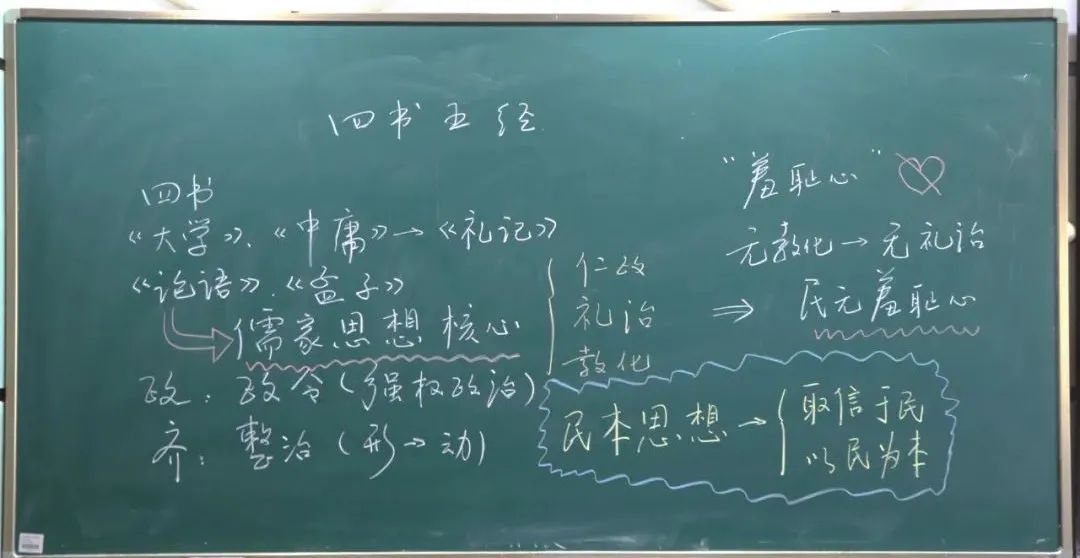 四书五经
四书
《大学》、《中庸》→《礼记》
《论语》、《孟子》
儒家思想核心
{仁政
礼治
教化
政：政令（强权政治）
齐：整治（形→动）
"羞耻心"
无教化→无礼治
⇒ 民无羞耻心
民本思想→{取信于民
以民为本